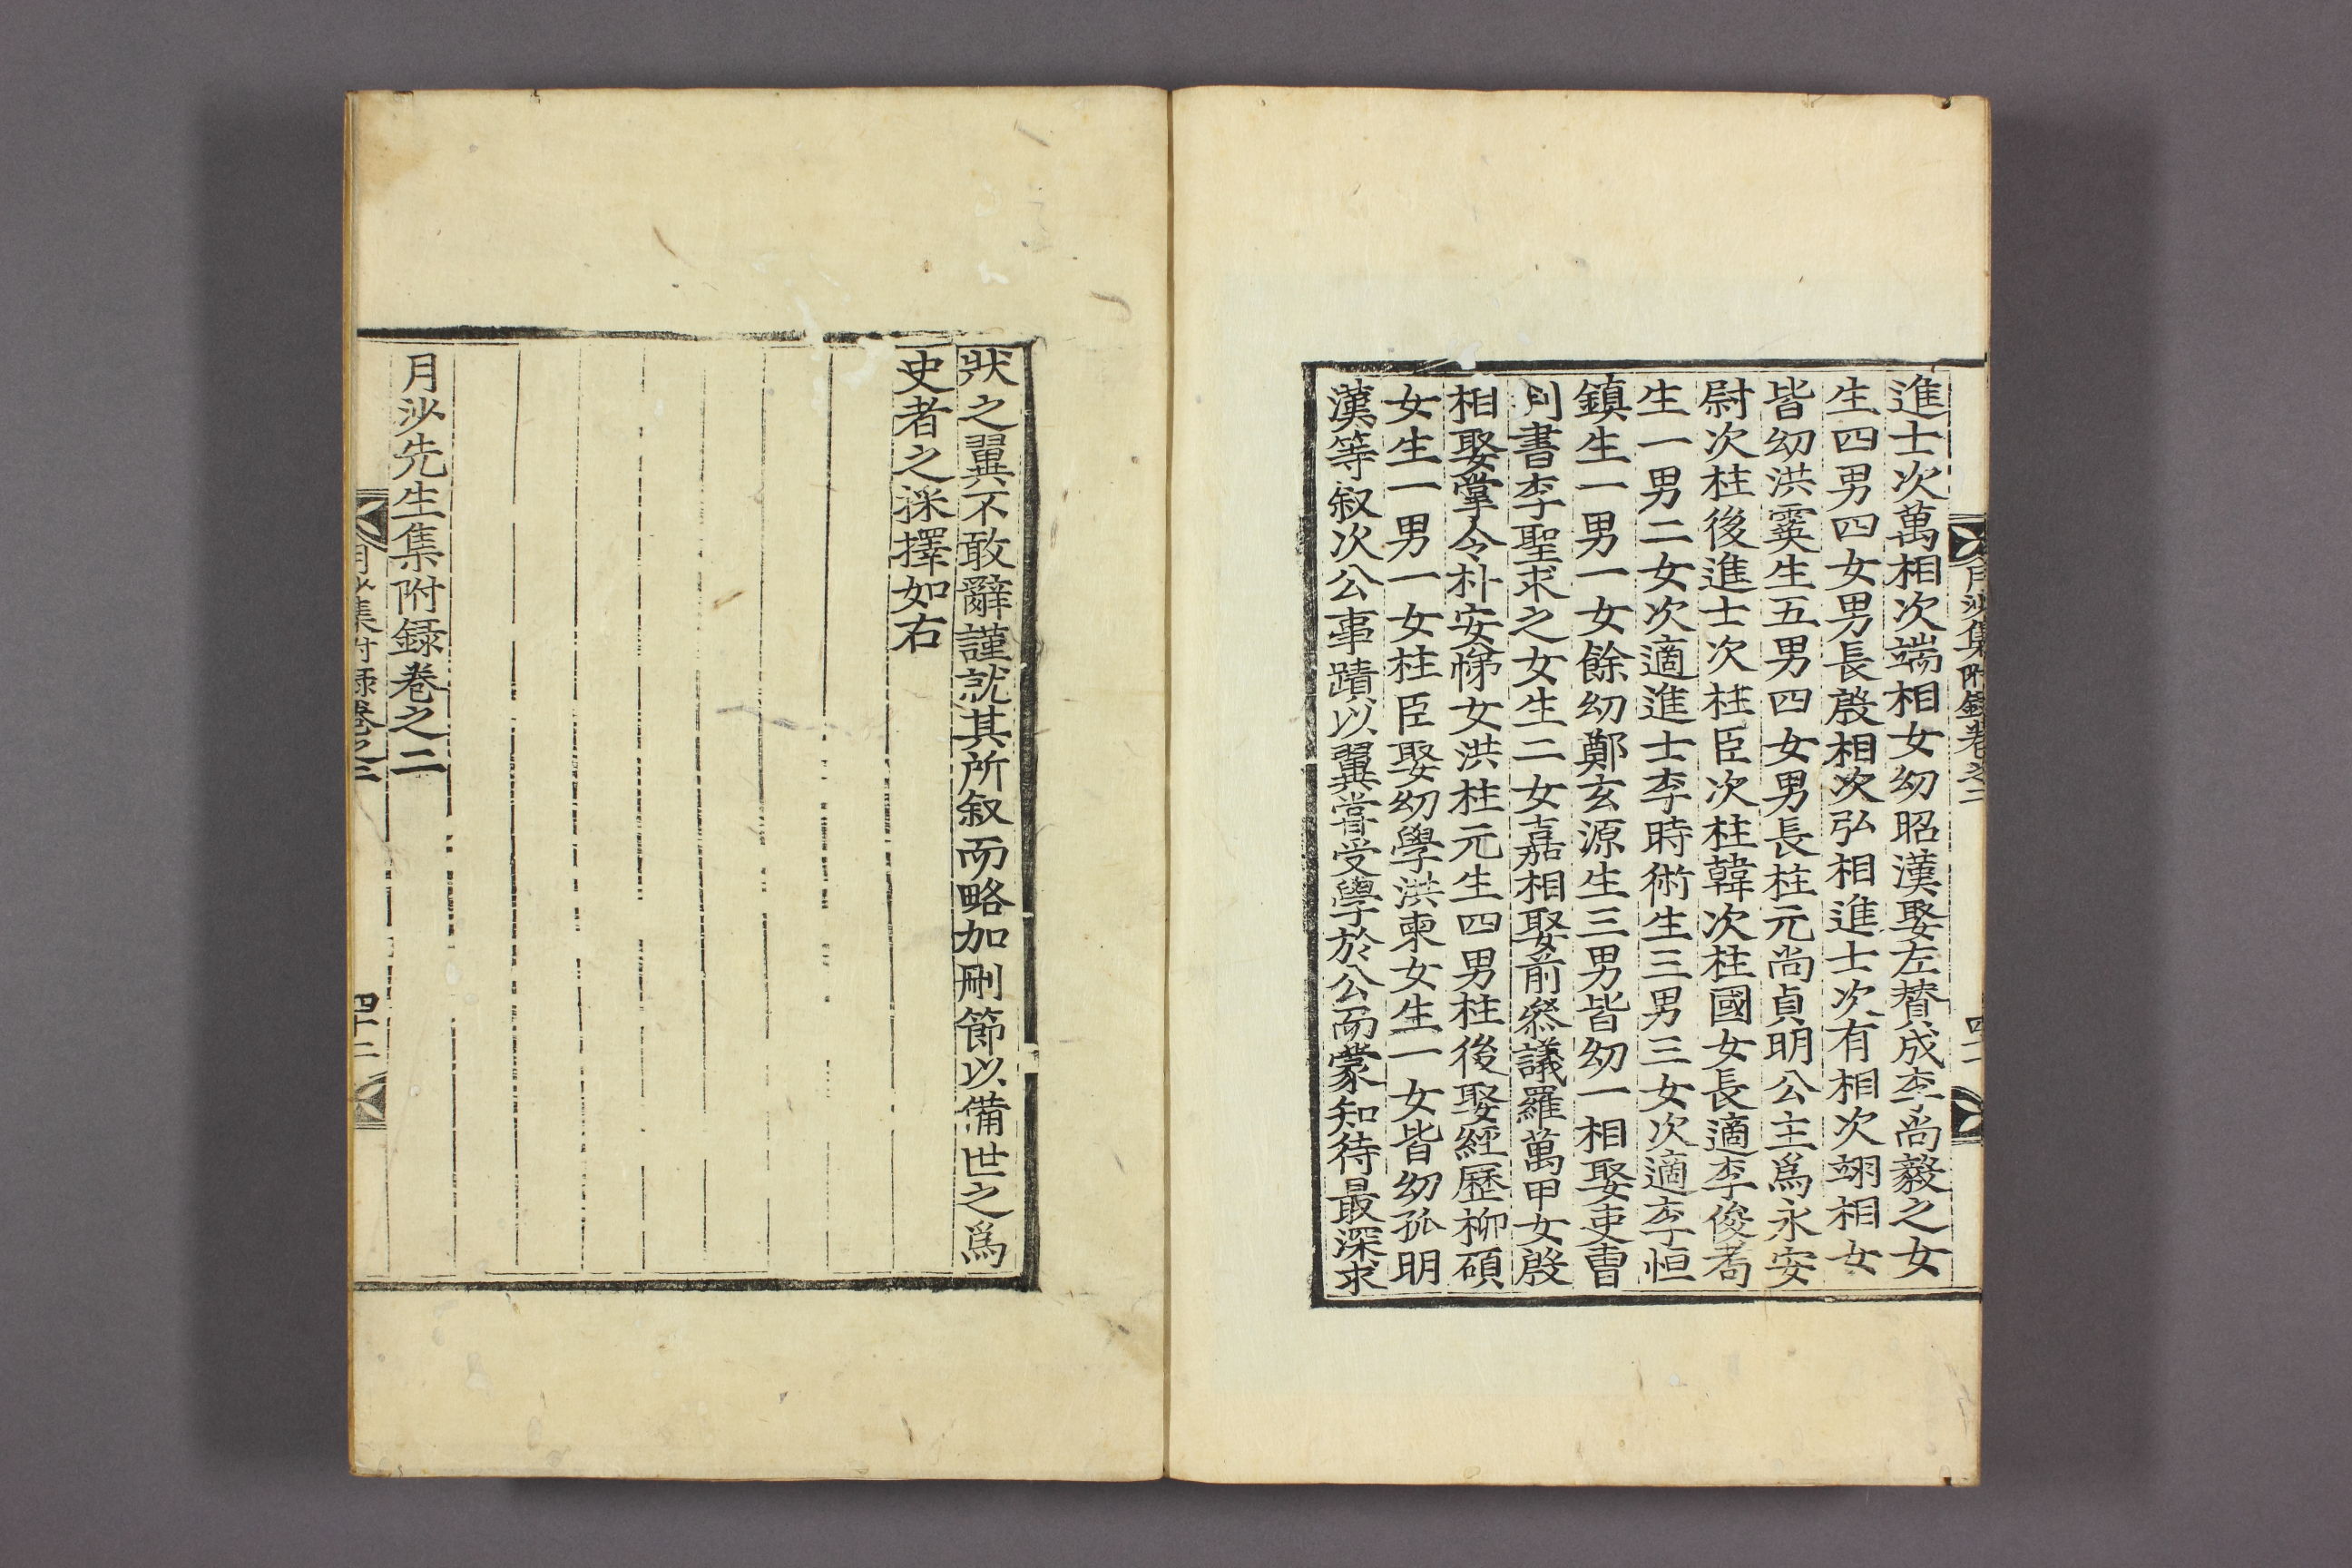 月沙集附錄卷之二
四十一
進士次萬相次端相女幼昭漢娶左贊成李尙毅之女
生四男四女男長殷相次弘相進士次有相次翊相女
皆幼洪霙生五男四女男長柱元尙貞明公主爲永安
尉次柱後進士次柱臣次柱韓次柱國女長適李俊耉
生一男二女次適進士李時術生三男三女次適李恒
鎮生一男一女餘幼鄭玄源生三男皆幼一相娶吏曹
判書李聖求之女生二女嘉相娶前叅議羅萬甲女殷
相娶掌令朴安悌女洪柱元生四男柱後娶經歷柳碩
女生一男一女柱臣娶幼學洪柬女生一女皆幼孤明
漢等叙次公事蹟以翼甞受學於公而蒙知待最深求
狀之翼不敢辭謹就其所叙而略加刪節以備世之爲
史者之採擇如右
月沙先生集附録卷之二
月沙集附録卷之二
四十二